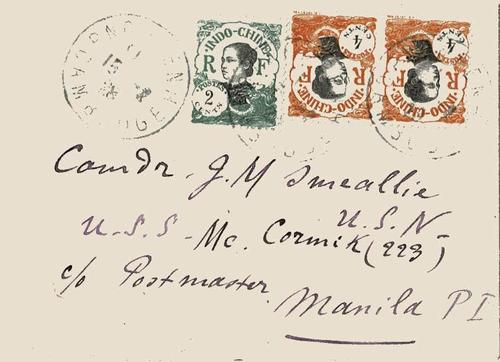 INDO-CHINE
R F
POSTES
2
CENTS
INDO-CHINE
R F
4
CENTS
INDO-CHINE
R F
4
CENTS
Comdr. J. M Smeallie
U.S.N
U.S.S - Mc. Cormik (223)
c/o Postmaster
Manila P I